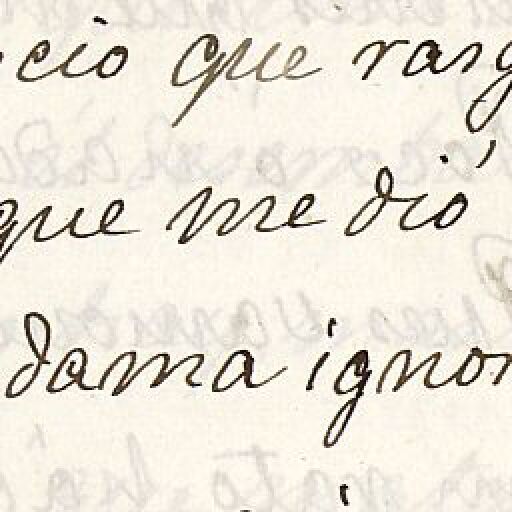 cio que rasg
que me dió
dama ignor